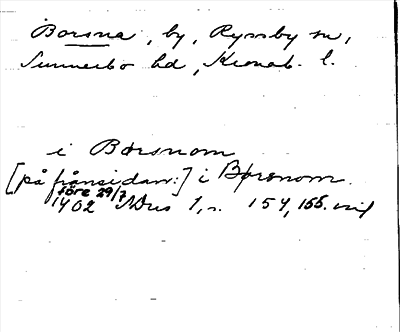 Borsna, by, Ryssby sn,
Sunnerbo hd, Kronob. l.
i Børsnom
[på frånsidan:] i Børsnom
före 29/7
1402 NDus 1, s. 154, 155. vid